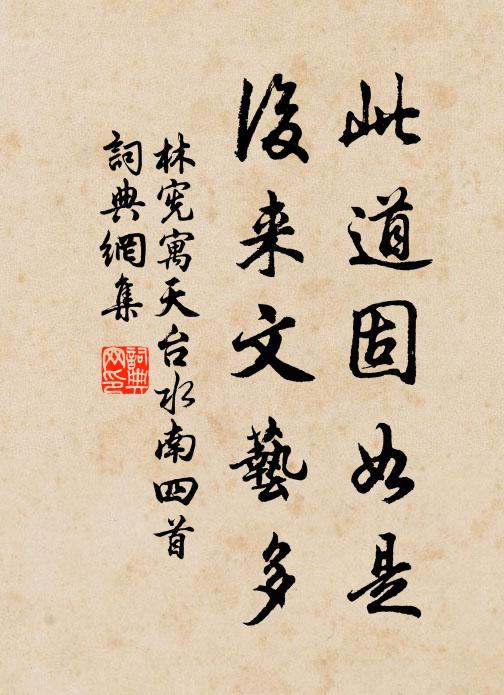 此道固如是
後来文藝多
林宪寓天台水南四首
詞典網集
詞典网印